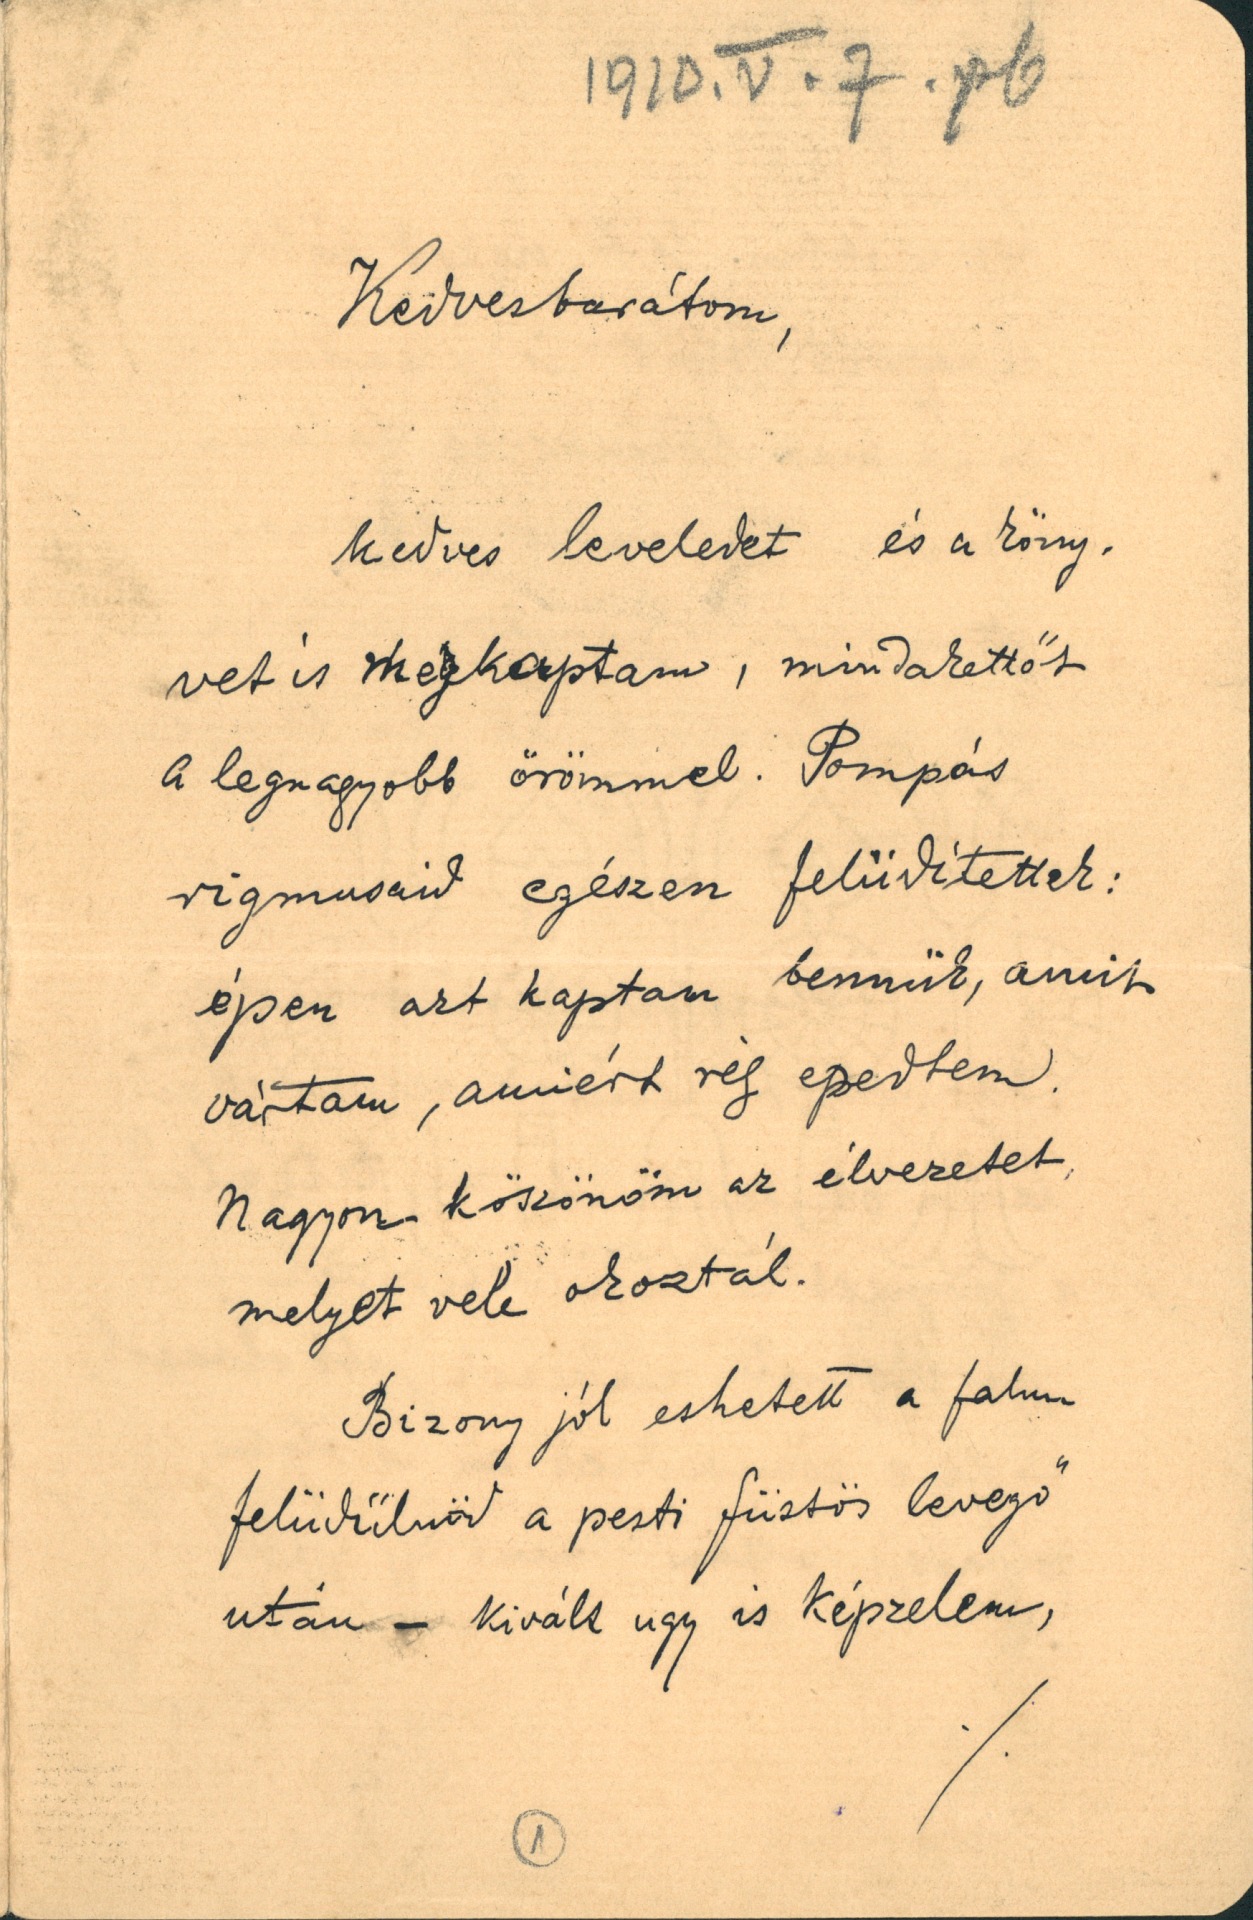 1910.V.7.pb
Kedves barátom,
kedves leveledet és a köny-
vet is megkaptam, mindakettőt
a legnagyobb örömmel. Pompás
rigmusaid egészen felüdítettek:
épen azt kaptam bennük, amit
vártam, amiért rég epedtem.
Nagyon köszönöm az élvezetet,
melyet vele okoztál.
Bizony jól eshetett a falun
felüdülnöd a pesti füstös levegő
után – kivált ugy is képzelem,
./.
1